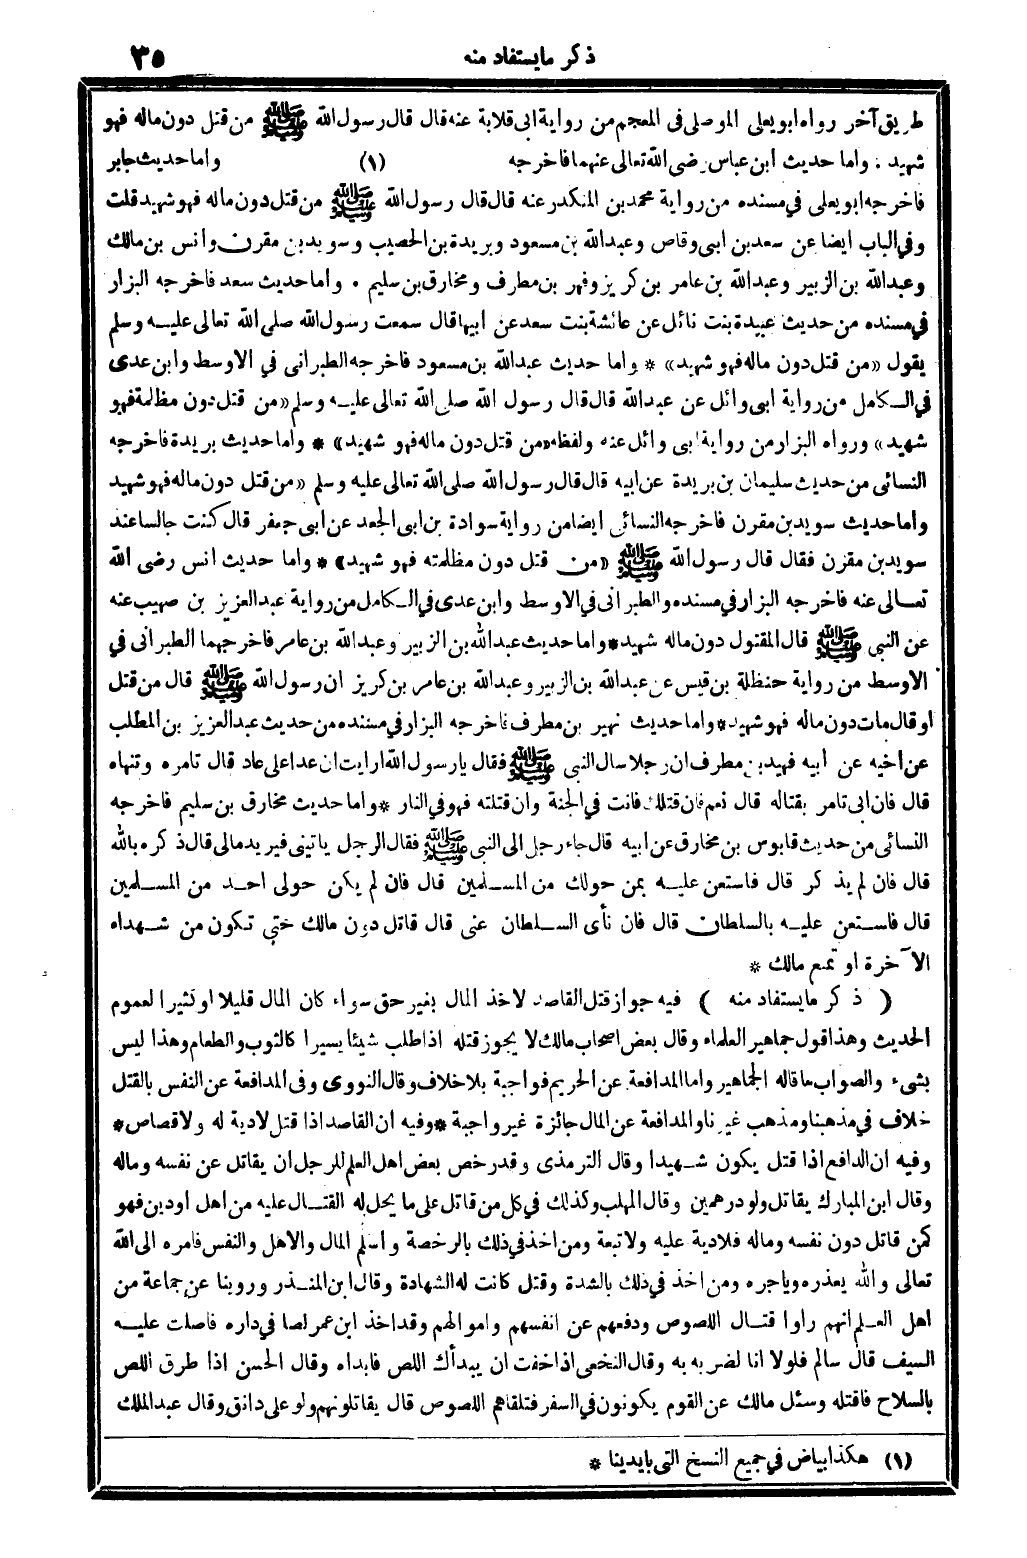 ذكر مايستفاد منه
٣٥
طريق آخر رواه ابو يعلى الموصلى فى المعجم من رواية ابى قلابة عنه قال قال رسول الله ﷺ من قتل دون ماله فهو
شهيد . واما حديث ابن عباس رضى الله تعالى عنهما فاخرجه (١) واما حديث جابر
فاخرجه ابو يعلى في مسنده من رواية محمد بن المنكدر عنه قال قال رسول الله ﷺ من قتل دون ماله فهو شهيد قلت
وفي الباب ايضا عن سعد بن ابى وقاص وعبدالله بن مسعود وبريدة بن الحصيب وسويد بن مقرن وانس بن مالك
وعبدالله بن الزبير وعبدالله بن عامر بن كريز وفهر بن مطرف ومخارق بن سليم . واما حديث سعد فاخرجه البزار
في مسنده من حديث عبيدة بنت نائل عن عائشة بنت سعد عن ابيها قال سمعت رسول الله صلى الله تعالى عليه وسلم
يقول «من قتل دون ماله فهو شهيد» * واما حديث عبدالله بن مسعود فاخرجه الطبرانى في الاوسط وابن عدى
في الكامل من رواية ابى وائل عن عبدالله قال قال رسول الله صلى الله تعالى عليه وسلم «من قتل دون مظلمة فهو
شهيد» ورواه البزار من رواية ابى وائل عنه ولفظه «من قتل دون ماله فهو شهيد» * واما حديث بريدة فاخرجه
النسائى من حديث سليمان بن بريدة عن ابيه قال قال رسول الله صلى الله تعالى عليه وسلم «من قتل دون ماله فهو شهيد
واما حديث سويد بن مقرن فاخرجه النسائى ايضا من رواية سوادة بن ابى الجعد عن ابى جعفر قال كنت جالسا عند
سويد بن مقرن فقال قال رسول الله ﷺ «من قتل دون مظلمته فهو شهيد» * واما حديث انس رضى الله
تعالى عنه فاخرجه البزار في مسنده والطبرانى في الاوسط وابن عدى في الكامل من رواية عبدالعزيز بن صهيب عنه
عن النبى ﷺ قال المقتول دون ماله شهيد * واما حديث عبدالله بن الزبير وعبدالله بن عامر فاخرجهما الطبرانى في
الاوسط من رواية حنظلة بن قيس عن عبدالله بن الزبير وعبدالله بن عامر بن كريز ان رسول الله ﷺ قال من قتل
او قال مات دون ماله فهو شهيد * واما حديث نهير بن مطرف فاخرجه البزار في مسنده من حديث عبدالعزيز بن المطلب
عن اخيه عن أبيه فهيد بن مطرف ان رجلا سال النبى ﷺ فقال يا رسول الله ارايت ان عدا على عاد قال تامره وتنهاه
قال فان ابى تامر بقتاله قال نعم فان قتلك فانت في الجنة وان قتلته فهو في النار * واما حديث مخارق بن سليم فاخرجه
النسائى من حديث قابوس بن مخارق عن ابيه قال جاء رجل الى النبى ﷺ فقال الرجل ياتينى فيريد مالى قال ذكره بالله
قال فان لم يذكر قال فاستعن عليه بمن حولك من المسلمين قال فان لم يكن حولى احد من المسلمين
قال فاستعن عليه بالسلطان قال فان نأى السلطان عنى قال قاتل دون مالك حتى تكون من شهداء
الآخرة او تمنع مالك *
( ذكر مايستفاد منه ) فيه جواز قتل القاصد لاخذ المال بغير حق سواء كان المال قليلا او كثيرا لعموم
الحديث وهذا قول جماهير العلماء وقال بعض اصحاب مالك لا يجوز قتله اذا طلب شيئا يسيرا كالثوب والطعام وهذا ليس
بشىء والصواب ما قاله الجماهير واما المدافعة عن الحريم فواجبة بلا خلاف وقال النووى وفى المدافعة عن النفس بالقتل
خلاف في مذهبنا ومذهب غيرنا والمدافعة عن المال جائزة غير واجبة * وفيه ان القاصد اذا قتل لادية له ولا قصاص *
وفيه ان الدافع اذا قتل يكون شهيدا وقال الترمذى وقد رخص بعض اهل العلم للرجل ان يقاتل عن نفسه وماله
وقال ابن المبارك يقاتل ولو درهمين وقال المهلب وكذلك في كل من قاتل على ما يحل له القتال عليه من اهل اودين فهو
كمن قاتل دون نفسه وماله فلادية عليه ولا تبعة ومن اخذ في ذلك بالرخصة واسلم المال والاهل والنفس فامره الى الله
تعالى والله يعذره وياجره ومن اخذ في ذلك بالشدة وقتل كانت له الشهادة وقال ابن المنذر وروينا عن جماعة من
اهل العلم انهم راوا قتال اللصوص ودفعهم عن انفسهم واموالهم وقد اخذ ابن عمر لصا في داره فاصلت عليه
السيف قال سالم فلولا انا لضربه به وقال النخعى اذا خفت ان يبدأك اللص فابداه وقال الحسن اذا طرق اللص
بالسلاح فاقتله وسئل مالك عن القوم يكونون في السفر فتلقاهم اللصوص قال يقاتلونهم ولو على دانق وقال عبد الملك
(١) هكذا بياض في جميع النسخ التى بايدينا *